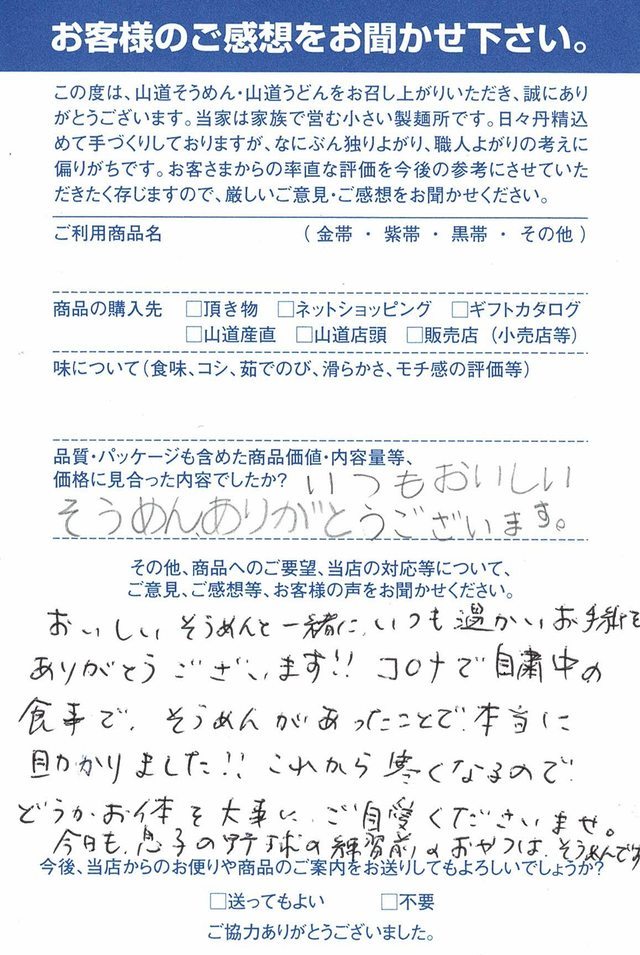 お客様のご感想をお聞かせ下さい。
この度は、山道そうめん・山道うどんをお召し上がりいただき、誠にあり
がとうございます。当家は家族で営む小さい製麺所です。日々丹精込
めて手づくりしておりますが、なにぶん独りよがり、職人よがりの考えに
偏りがちです。お客さまからの率直な評価を今後の参考にさせていた
だきたく存じますので、厳しいご意見・ご感想をお聞かせください。
ご利用商品名 （ 金帯 ・ 紫帯 ・ 黒帯 ・ その他 ）
商品の購入先 □頂き物 □ネットショッピング □ギフトカタログ
□山道産直 □山道店頭 □販売店（小売店等）
味について（食味、コシ、茹でのび、滑らかさ、モチ感の評価等）
品質・パッケージも含めた商品価値・内容量等、
価格に見合った内容でしたか? いつもおいしい
そうめん、ありがとうございます。
その他、商品へのご要望、当店の対応等について、
ご意見、ご感想等、お客様の声をお聞かせください。
おいしいそうめんと一緒に、いつも温かいお手紙を
ありがとうございます!! コロナで自粛中の
食事で、そうめんがあったことで本当に
助かりました!! これから寒くなるので
どうかお体を大事に、ご自愛くださいませ。
今日も、息子の野球の練習前のおやつは、そうめんです
今後、当店からのお便りや商品のご案内をお送りしてもよろしいでしょうか?
□送ってもよい □不要
ご協力ありがとうございました。